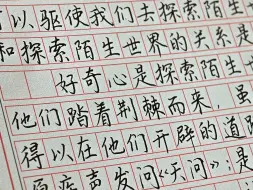 以驱使我们去探索陌生
和探索陌生世界的关系是
好奇心是探索陌生
他们踏着荆棘而来，虽
得以在他们开辟的道路
声发问《天问》；是